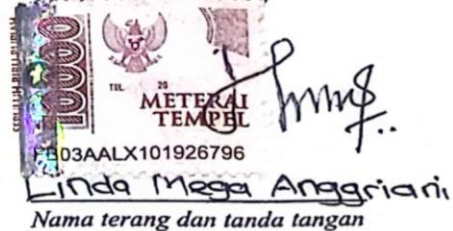 10000
TGL. 20
METERAI
TEMPEL
03AALX101926796
Linda Mega Anggriani
Nama terang dan tanda tangan